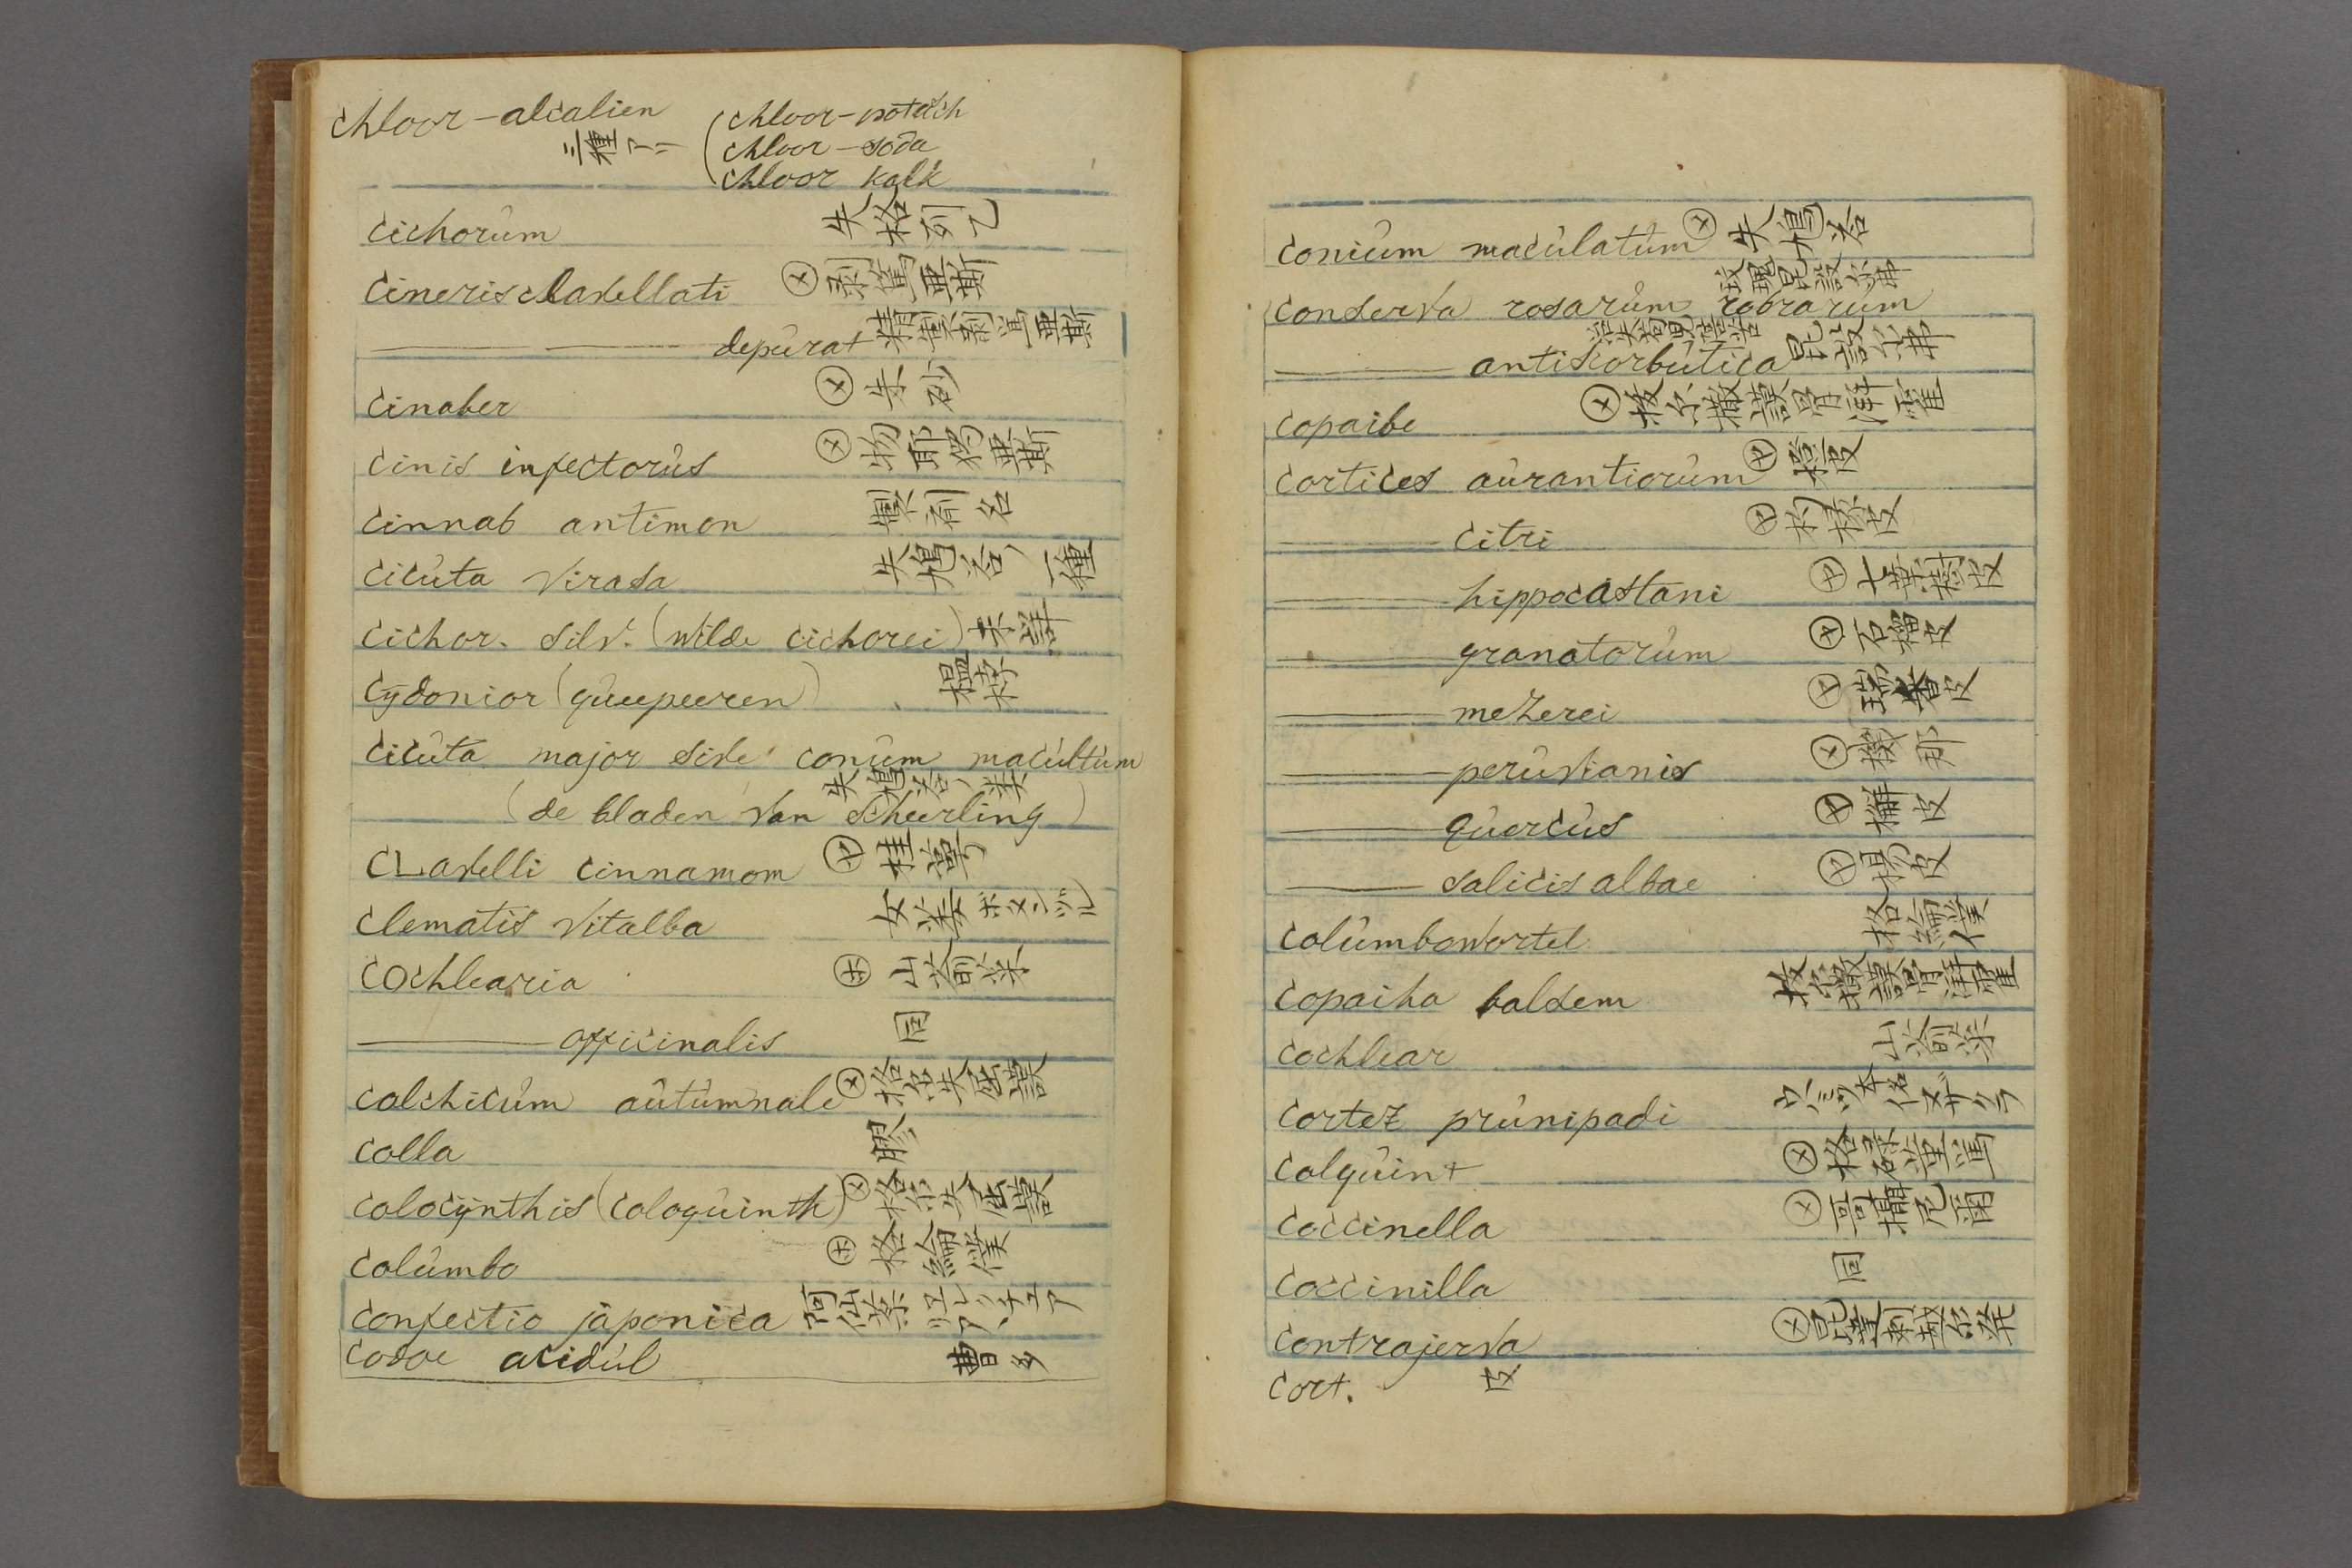 chloor-alcalien
三種アリ
chloor-potasch
chloor-soda
chloor kalk
cichorúm 失格列乙
Cineris clavellati ㋱ 剥篤亜斯
depúrat 精製剥篤亜斯
cinaber ㋱ 朱砂
cinis infectorús ㋱ 物耶獨亜斯
cinnab antimon 製剤名
cicúta virasa 失鳩答ノ一種
cichor. silv. (wilde cichorei)
Cydonior (queepeeren) 榲桲
cicúta major sive conúm macúltúm
失鳩答ノ葉
(de bladen van scheerling)
CLavelli cinnamom ㋲ 桂蕚
clematis vitalba 女萎 ボタンヅル
cochlearia ㋭ 山葵
officinalis 同
colchicúm aútúmnale ㋱ 格尔失屈謨
colla 膠
colocynthis (coloqúinth) ㋱ 格尔失屈謨
colúmbo ㋭ 格綸僕
confectio japonica 阿仙薬
codoe acidúl 曹多
coniúm macúlatúm ㋱ 失鳩答
conserva rosarúm robrarúm
antiscorbútica 昆設尔弗
copaibe ㋱ 拔尔撒謨骨湃霍
cortices aúrantiorúm 橙皮
citri 枸櫞皮
hippocastani 七葉樹皮
granatorúm 石榴皮
mezerei 瑞香皮
perúvianis 機那
qúercús 槲皮
salicis albae 楊皮
colúmbowortel 格綸僕
copaiha balsem 拔尔撒謨骨湃霍
cochlear 山葵
cortez prúnipadi 本名 イヌザクラ
colqúint
coccinella 哥攝尼爾
coccinilla 同
contrajerva
cort. 皮